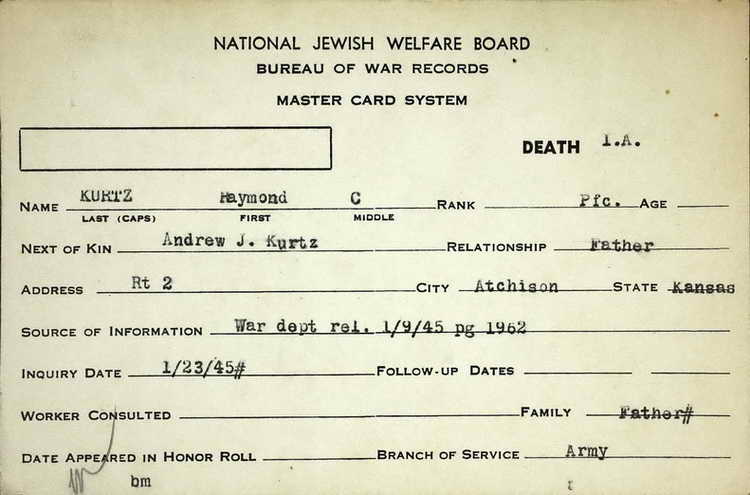 NATIONAL JEWISH WELFARE BOARD
BUREAU OF WAR RECORDS
MASTER CARD SYSTEM
DEATH I.A.
NAME KURTZ Raymond C RANK Pfc. AGE
LAST (CAPS) FIRST MIDDLE
NEXT OF KIN Andrew J. Kurtz RELATIONSHIP Father
ADDRESS Rt 2 CITY Atchison STATE Kansas
SOURCE OF INFORMATION War dept rel. 1/9/45 pg 1962
INQUIRY DATE 1/23/45# FOLLOW-UP DATES
WORKER CONSULTED FAMILY Father#
DATE APPEARED IN HONOR ROLL BRANCH OF SERVICE Army
bm